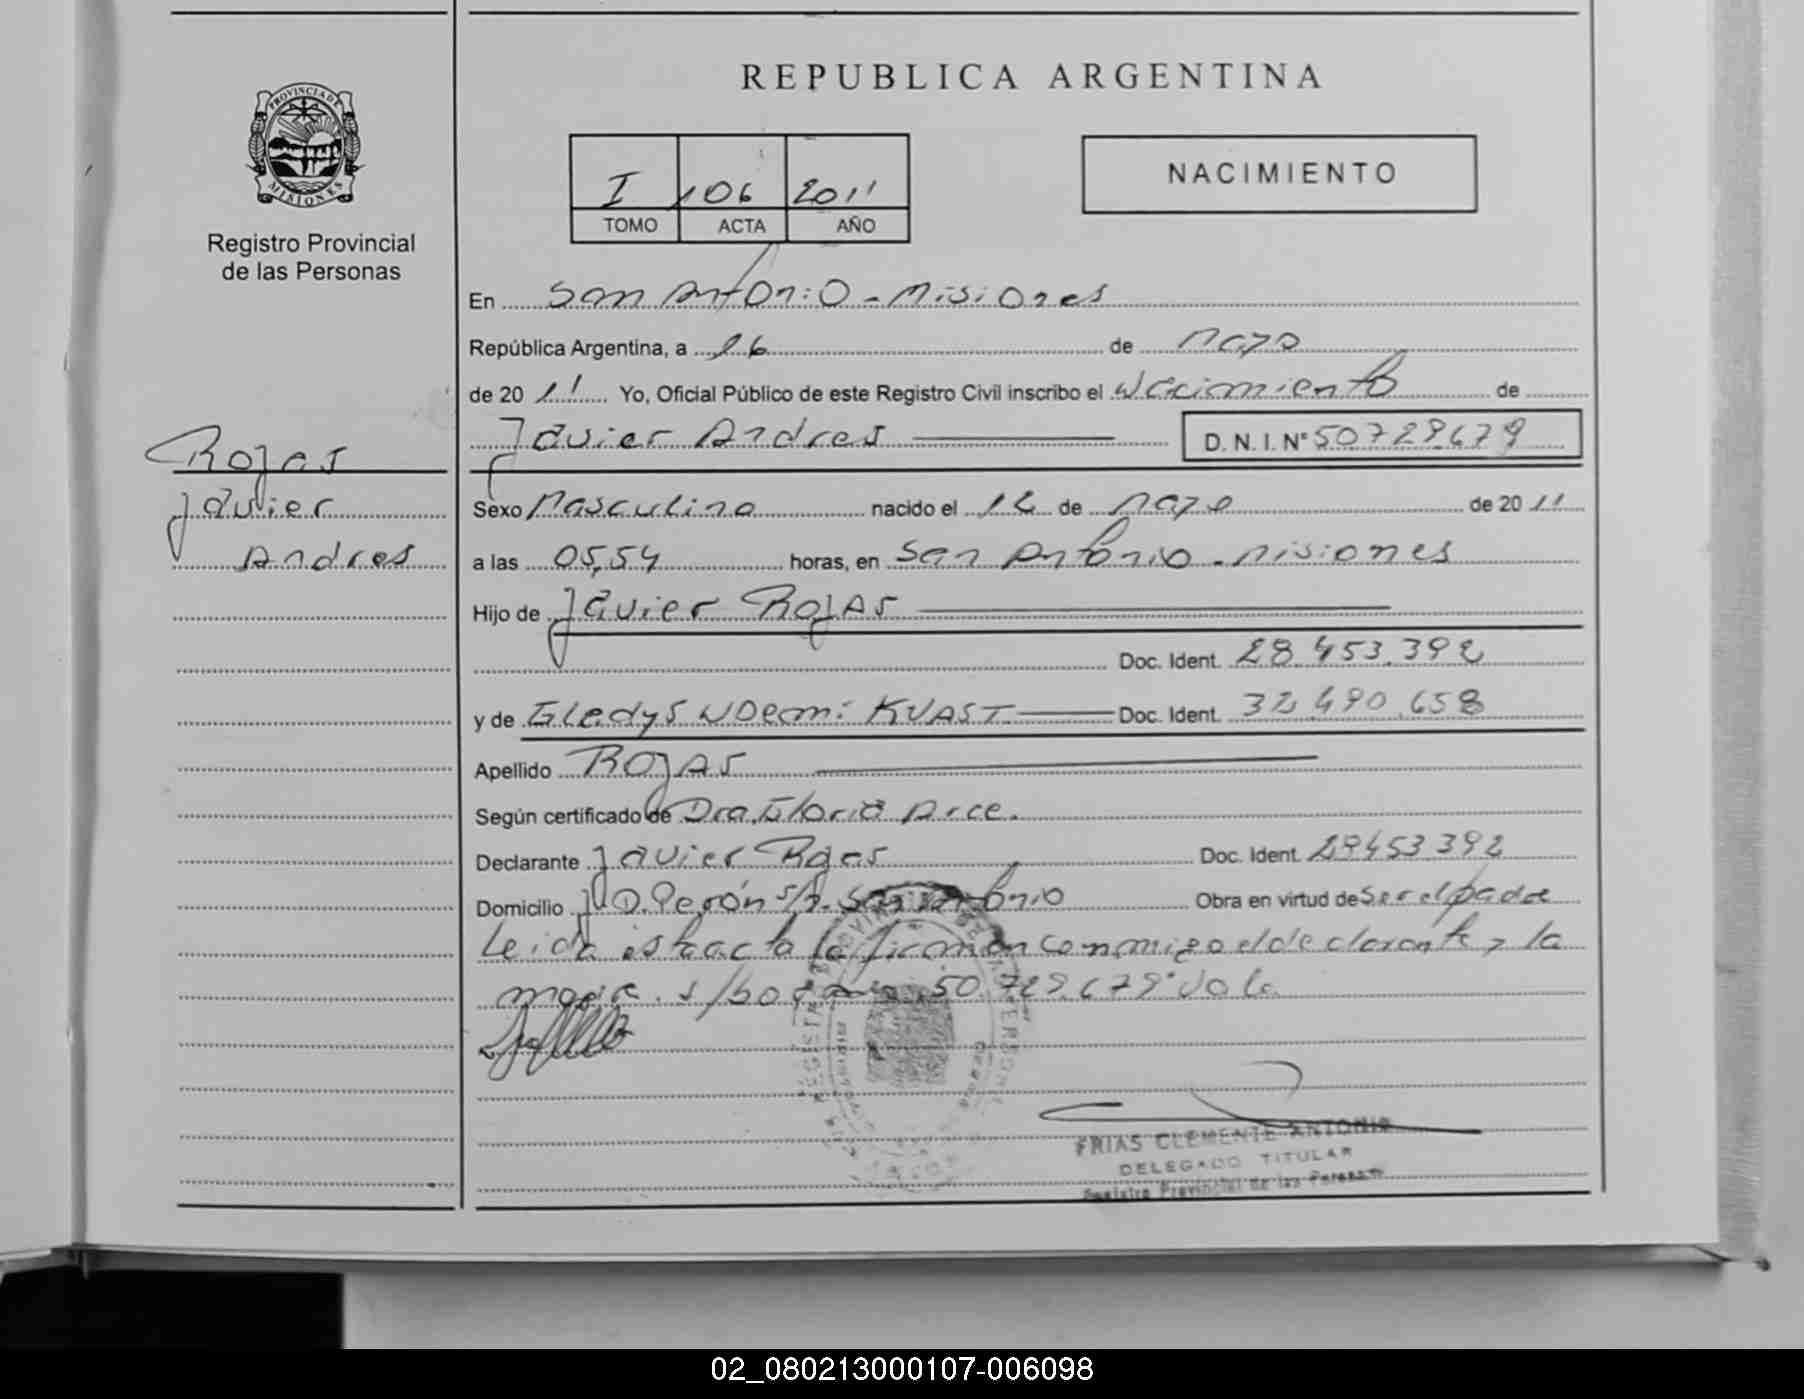 REPUBLICA ARGENTINA
PROVINCIA DE
MISIONES
Registro Provincial
de las Personas
I 106 2011
TOMO ACTA AÑO
NACIMIENTO
En San Antonio - Misiones
República Argentina, a 16 de Mayo
de 20 11 Yo, Oficial Público de este Registro Civil inscribo el Nacimiento de
Javier Andres D. N. I. N° 50729679
Rojas
Javier
Andres
Sexo Masculino nacido el 14 de Mayo de 20 11
a las 05,54 horas, en San Antonio - Misiones
Hijo de Javier Rojas
Doc. Ident. 28.453.392
y de Gladys Noemi KUAST Doc. Ident. 32.490.658
Apellido ROJAS
Según certificado de Dra. Gloria Arce.
Declarante Javier Rojas Doc. Ident. 28453392
Domicilio J.D. Perón s/n. San Antonio Obra en virtud de ser el padre
Leida esta acta la firman conmigo el declarante y la
madre. s/bo 50.729.679 Vale
FRIAS CLEMENTE ANTONIO
DELEGADO TITULAR
Registro Provincial de las Personas
02_080213000107-006098